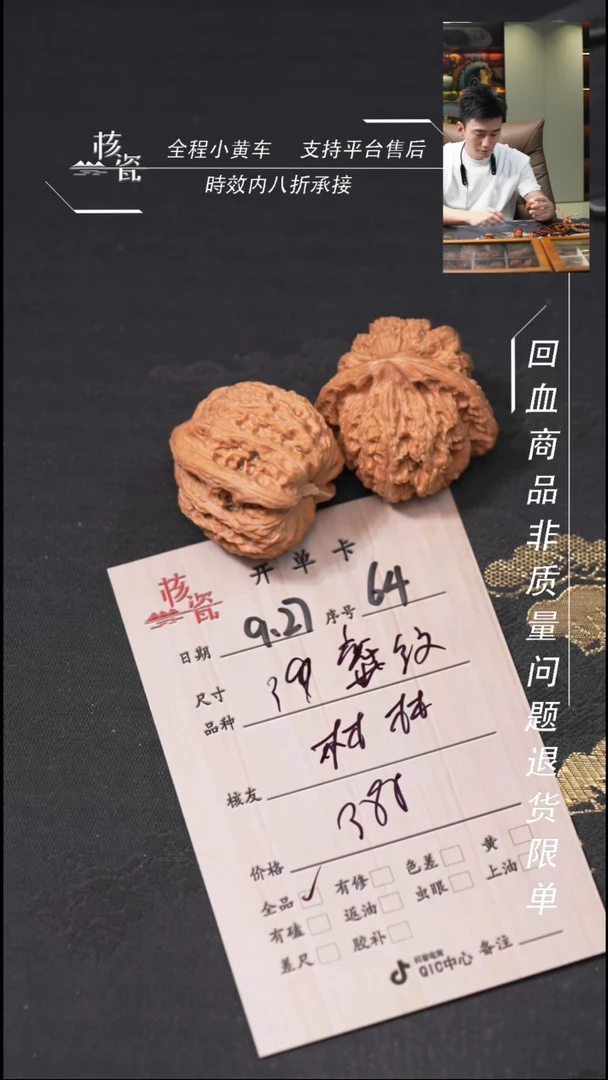 核瓷
全程小黄车 支持平台售后
時效内八折承接
回血商品非质量问题退货限单
核瓷
开单卡
日期 9.27 序号 64
尺寸
品种
核友 林林
价格
全品 ✓ 有修 色差 黄
有磕 返油 虫眼 上油
差尺 胶补
抖音电商
QIC中心 备注